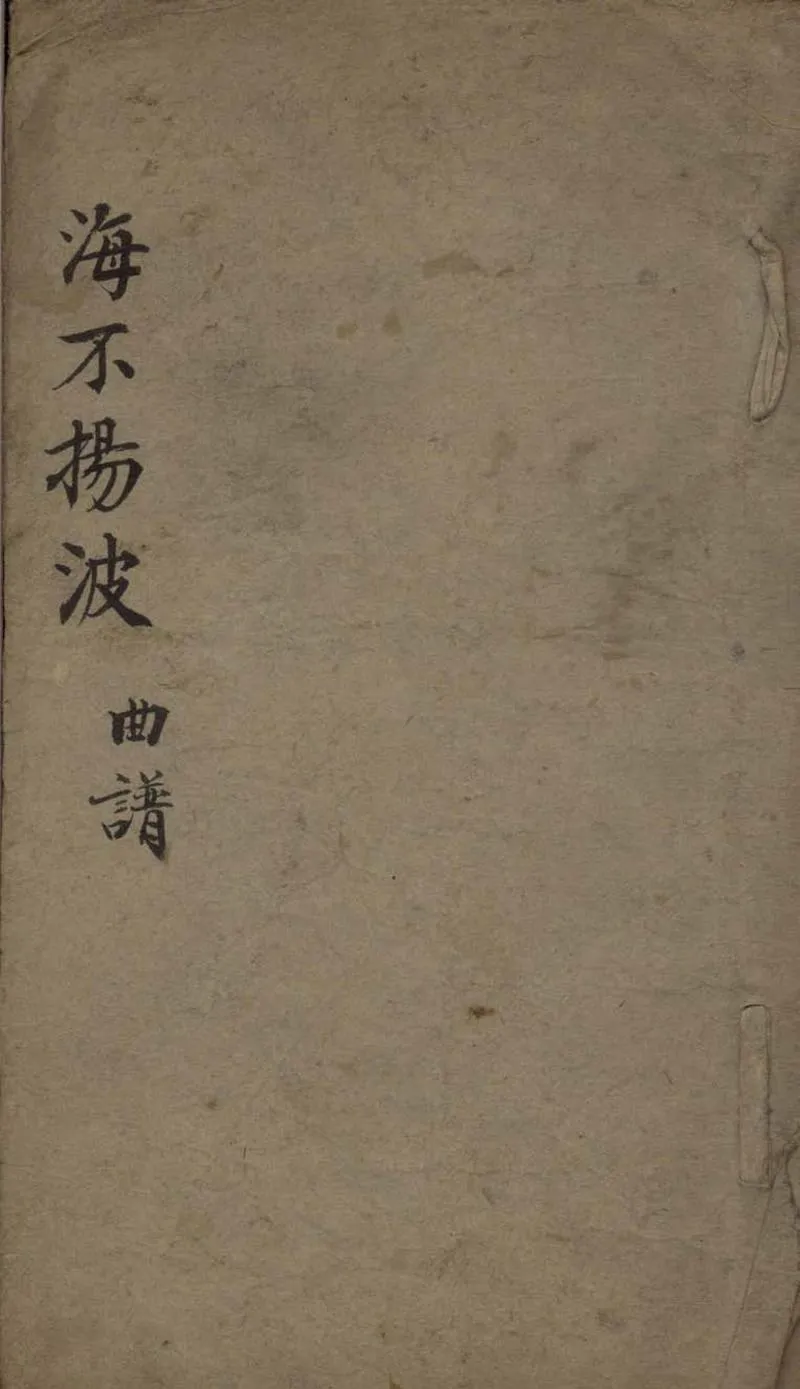 海不揚波 曲譜